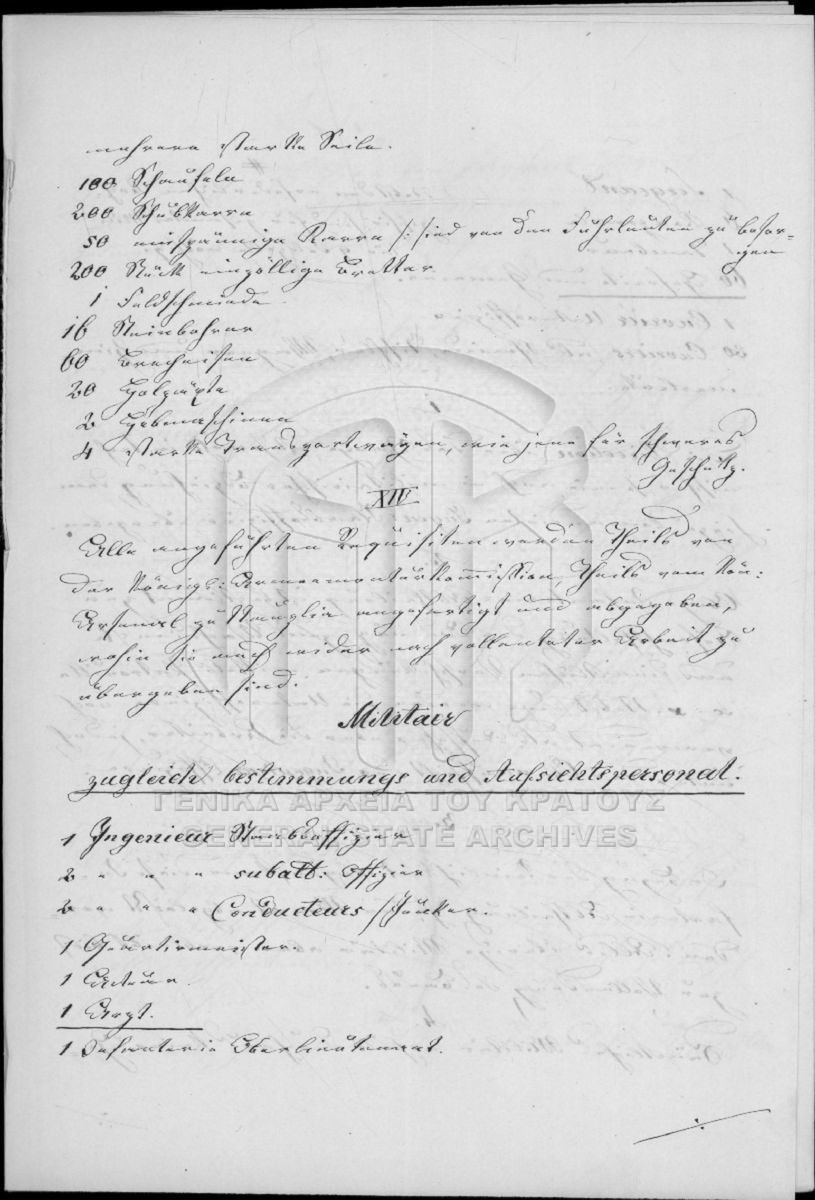 mehrere starke Seile.
100 Schaufeln
200 Schubkarrn
50 einspännige Karrn /: sind von den Fuhrleuten zu besor=
gen
200 Stück einzöllige Bretter
1 Feldschmiede.
16 Steinbohrer
60 Brecheisen
20 Holzäxte
2 Hebmaschinen
4 starke Transportwägen, wie jene für schweres
Geschütz.
XIV
Alle angeführten Requisiten werden theils von
der Königl: Armeemonturkommission, theils vom Kön:
Arsenal zu Nauplia angefertigt und abgegeben,
wohin sie auch wider nach vollendeter Arbeit zu
übergeben sind.
Militair
zugleich bestimmungs und Aufsichtspersonal.
ΓΕΝΙΚΑ ΑΡΧΕΙΑ ΤΟΥ ΚΡΑΤΟΥΣ
GENERAL STATE ARCHIVES
1 Ingenieur Stabsoffizier
2 " " " subalt: Offizier
2 " " " Conducteurs /Junker.
1 Quartirmeister.
1 Actuar.
1 Arzt.
1 Infanterie Oberlieutenant.
./.